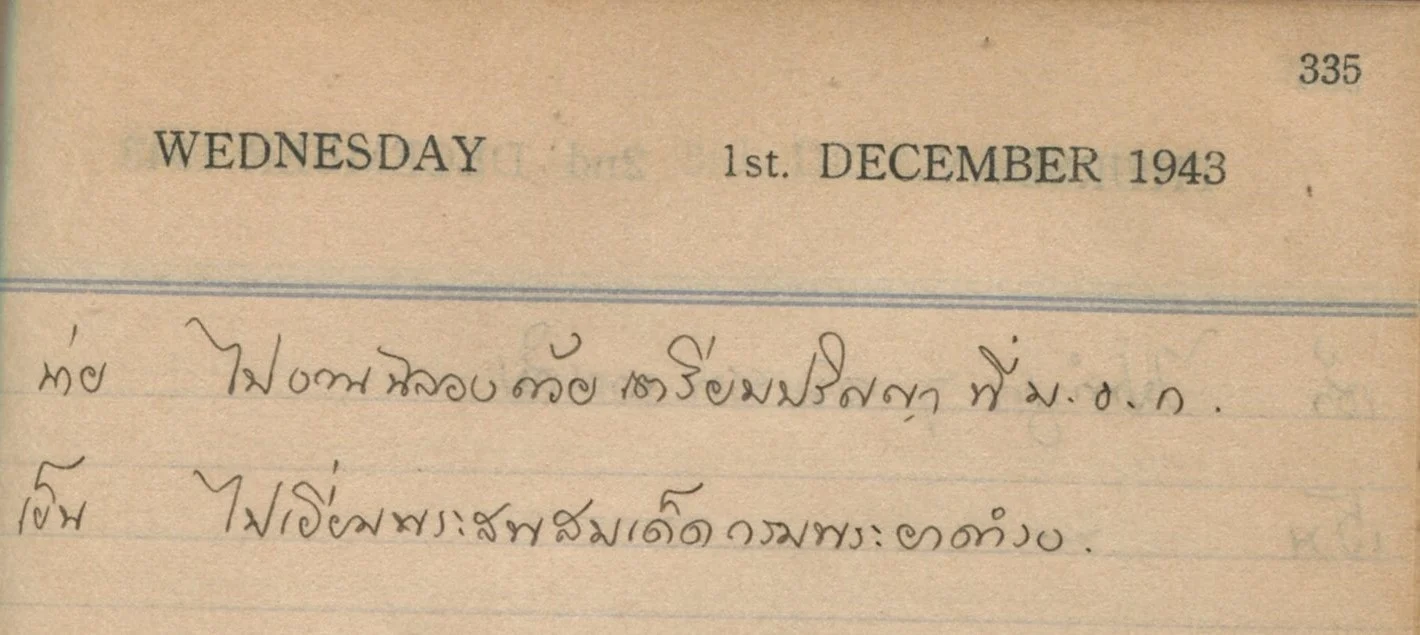 335
WEDNESDAY 1st. DECEMBER 1943
บ่าย ไปงานฉลองถ้วยเตรียมปริญญา ที่ ม.ธ.ก.
เย็น ไปเยี่ยมพระศพสมเด็จกรมพระยาดำรง.